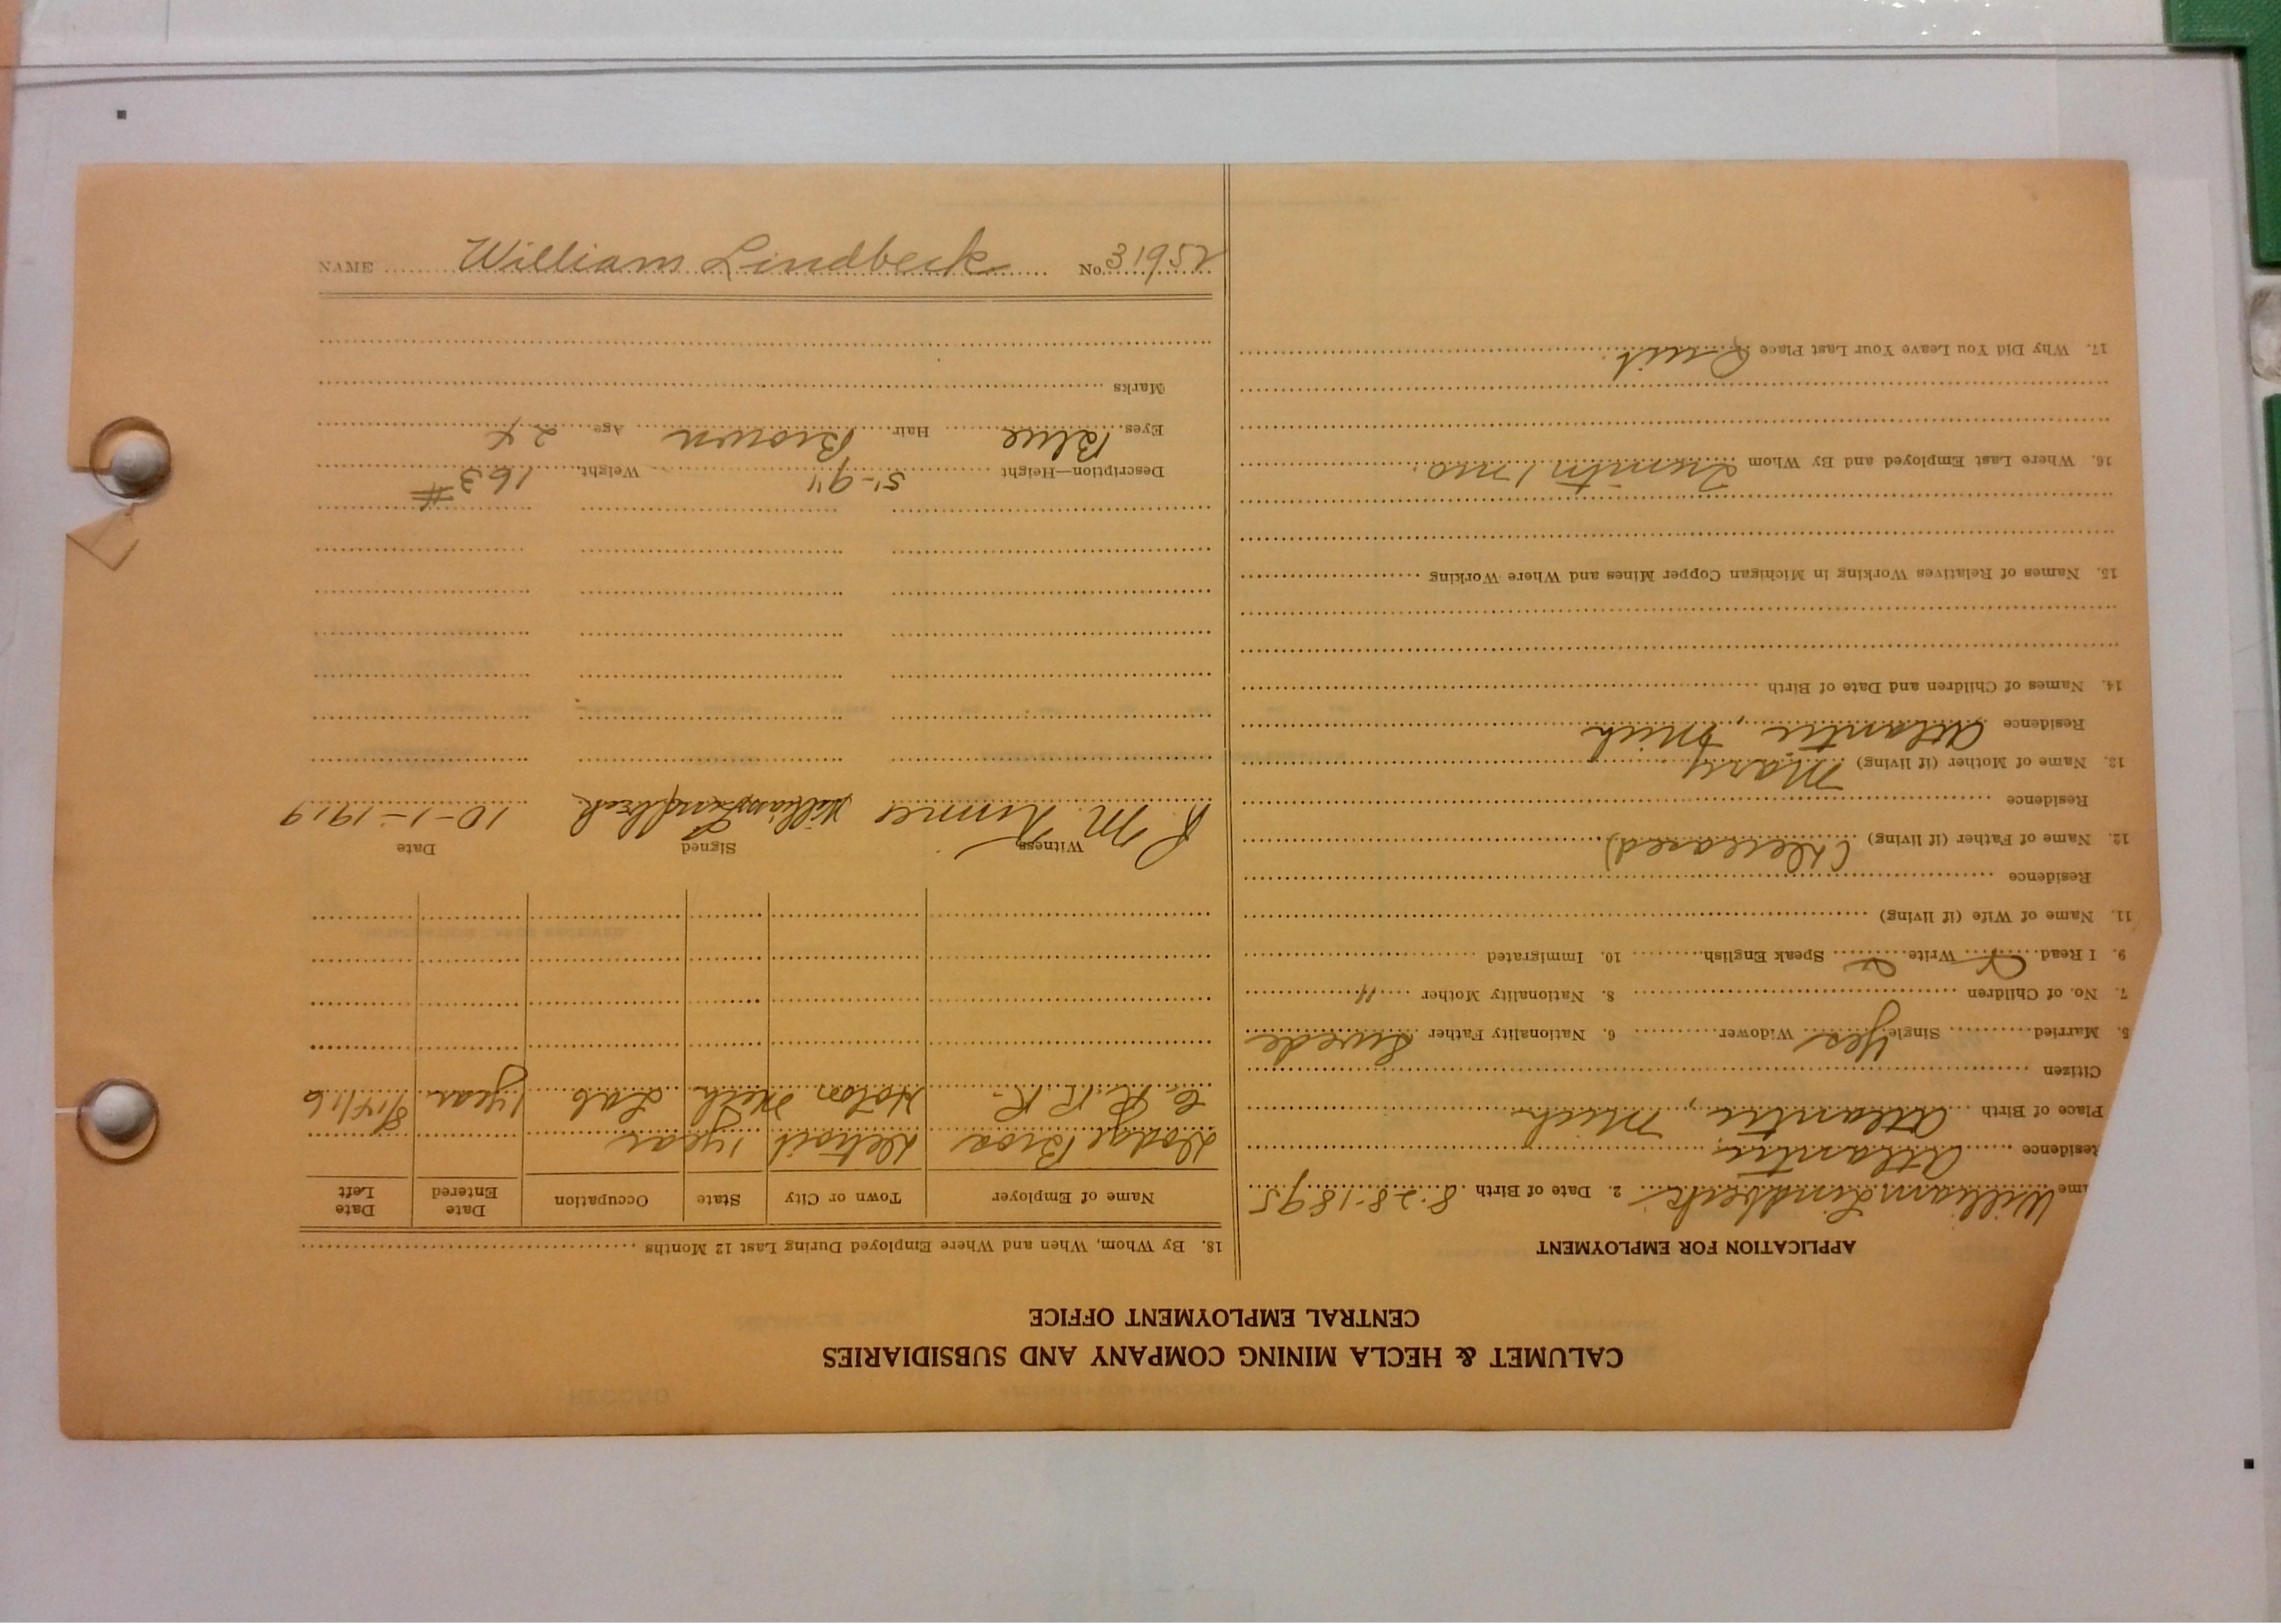 CALUMET & HECLA MINING COMPANY AND SUBSIDIARIES
CENTRAL EMPLOYMENT OFFICE
APPLICATION FOR EMPLOYMENT
me William Lindbeck 2. Date of Birth 8-28-1895
Residence Atlantic
Place of Birth Atlantic, Mich
Citizen
5. Married Single Yes Widower 6. Nationality Father Swede
7. No. of Children 8. Nationality Mother "
9. I Read Write Speak English 10. Immigrated
11. Name of Wife (if living)
Residence
12. Name of Father (if living) (Deceased)
Residence
13. Name of Mother (if living) Mary
Residence Atlantic, Mich
14. Names of Children and Date of Birth
15. Names of Relatives Working in Michigan Copper Mines and Where Working
16. Where Last Employed and By Whom 1 mo.
17. Why Did You Leave Your Last Place Quit
18. By Whom, When and Where Employed During Last 12 Months
Name of Employer Town or City State Occupation Date Entered Date Left
Dodge Bros Detroit 1 year
C. R. R. R. Hoton Mich Lab 1 year 9/14/16
Witness Signed Date
R M. William Lindbeck 10-1-1919
Description—Height 5'-9" Weight 163#
Eyes Blue Hair Brown Age 24
Marks
NAME William Lindbeck No. 31952